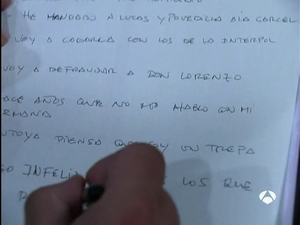 HE MANDADO A LUCAS Y POVEDILLA A LA CARCEL
VOY A CAGARLA CON LOS DE LA INTERPOL
VOY A DEFRAUDAR A DON LORENZO
ACE AÑOS QUE NO ME HABLO CON MI
RMANA
NTOYA PIENSA QUE SOY UN TREPA
GO INFELI LOS QUE
3